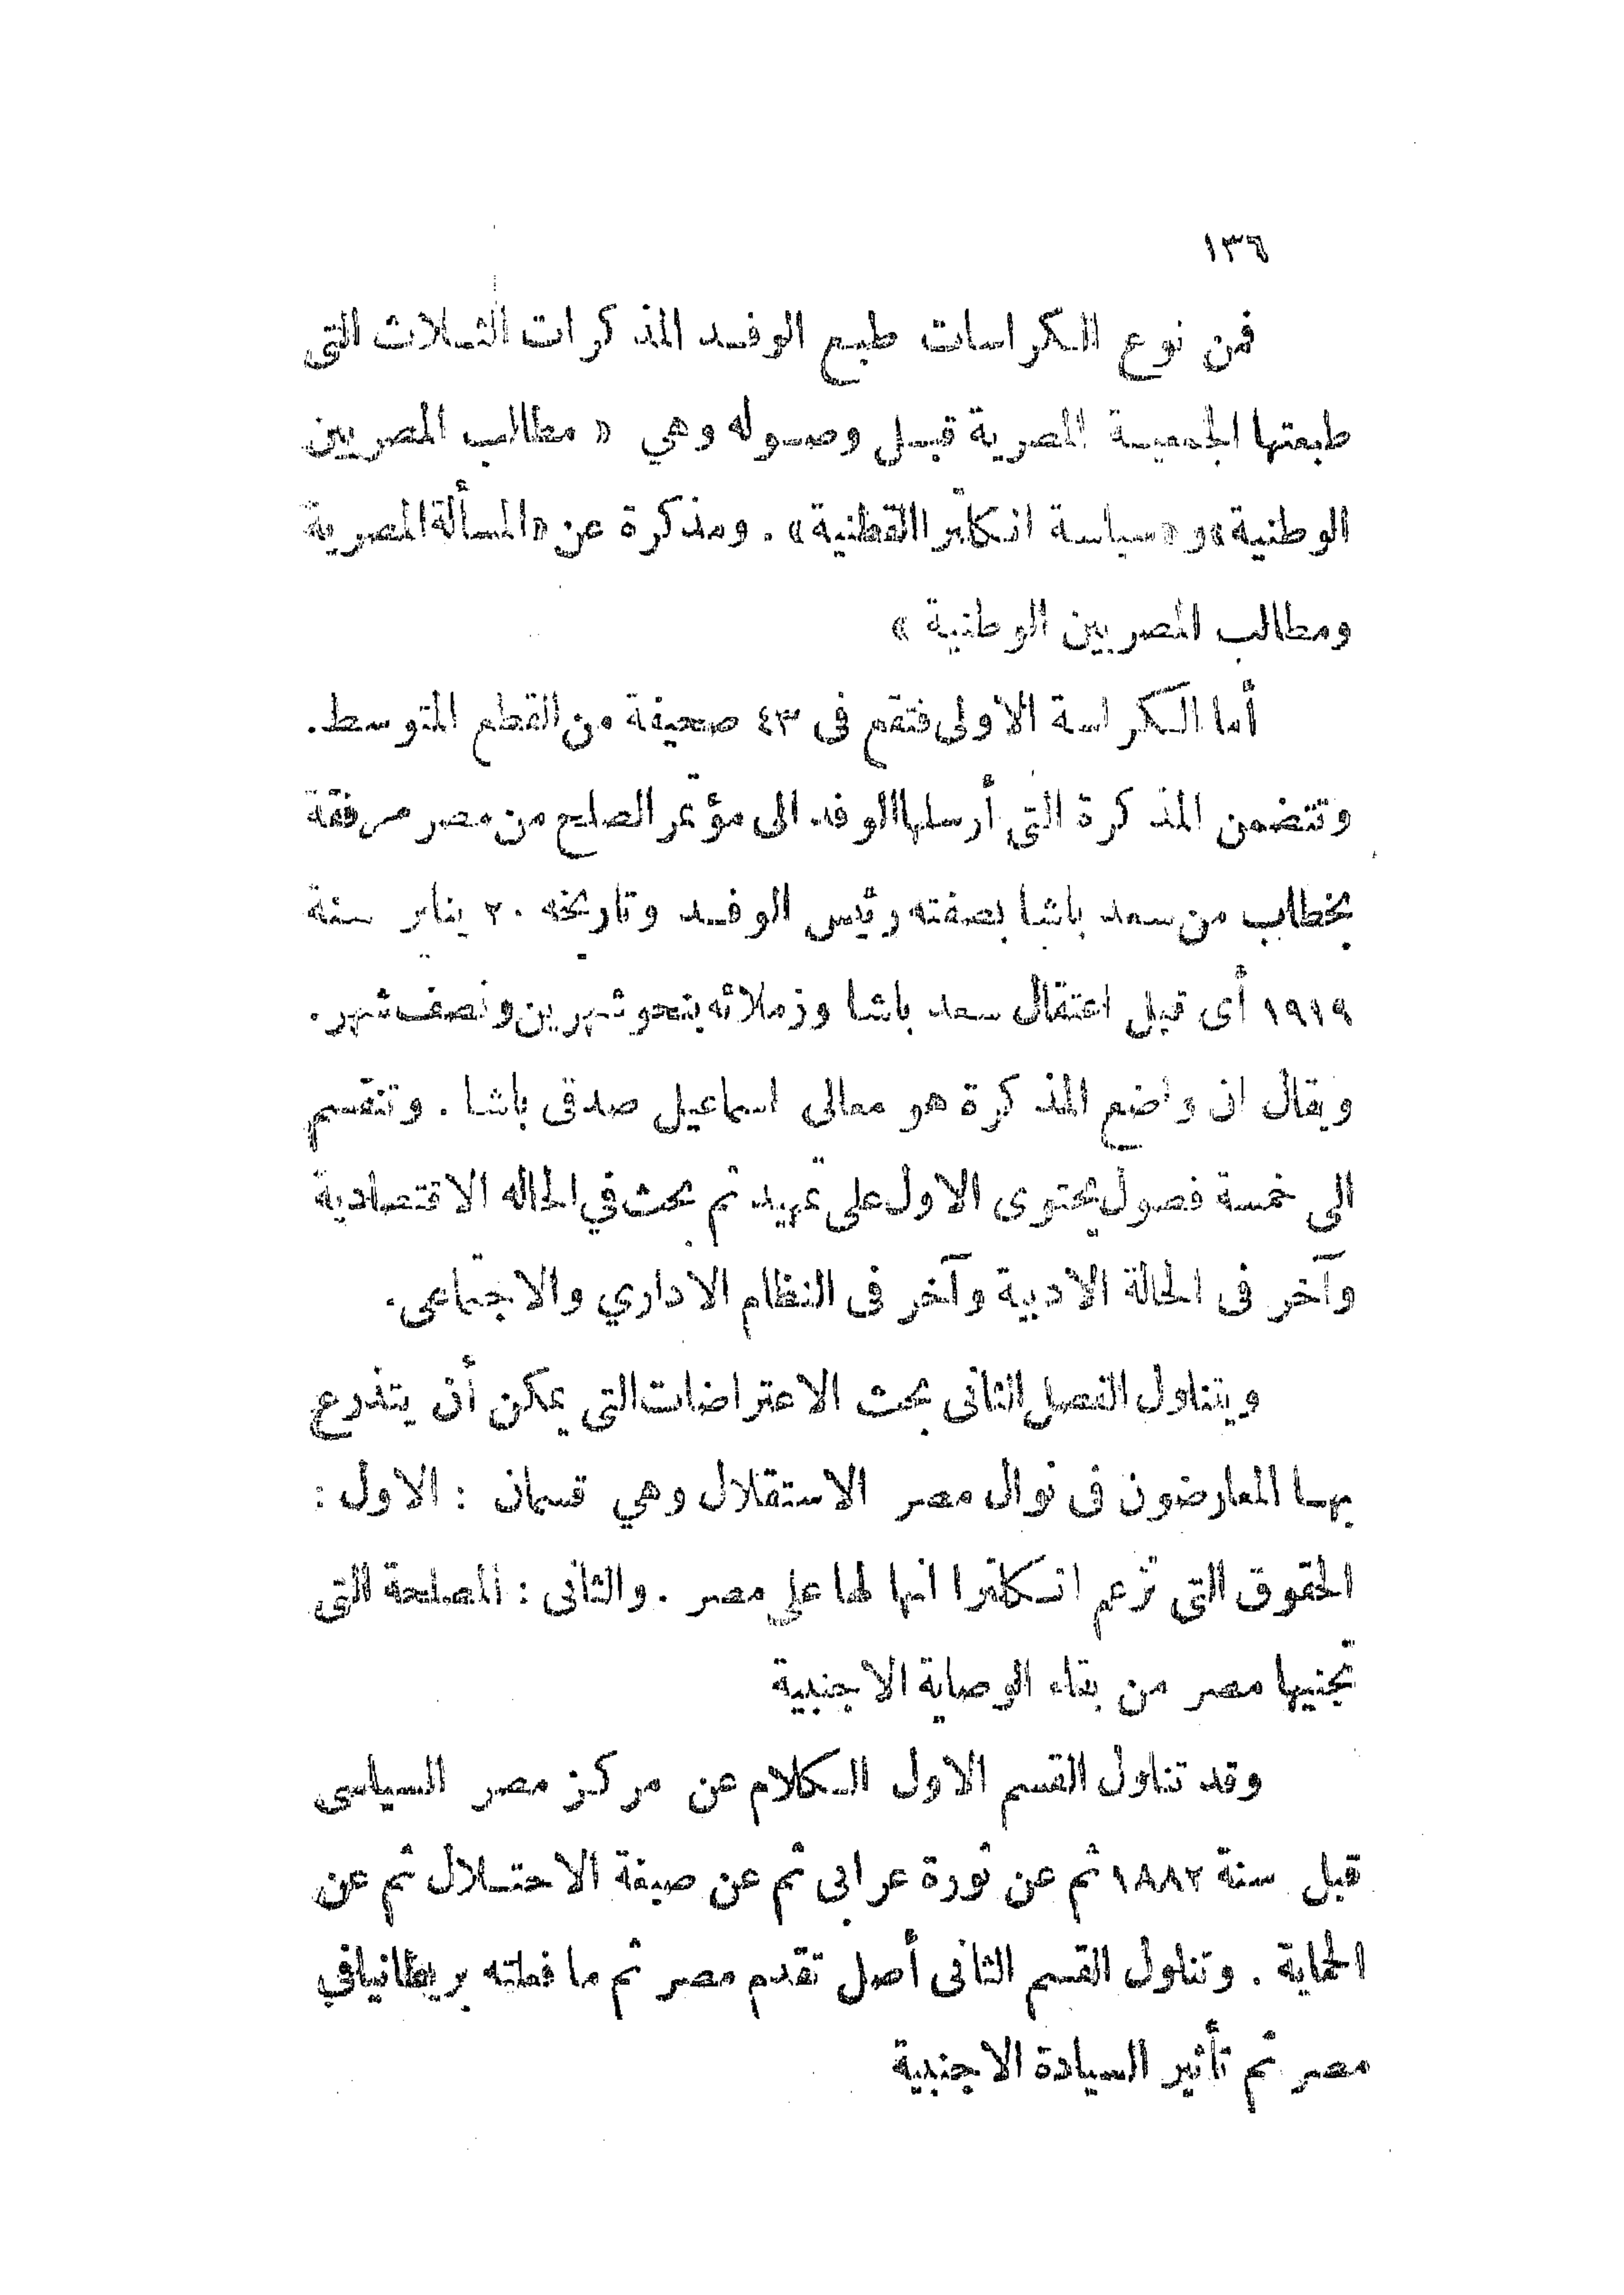 ١٣٦
فمن نوع الكراسات طبع الوفد المذكرات الثلاث التى
طبعتها الجمعية المصرية قبل وصوله وهي « مطالب المصريين
الوطنية» و «سياسة انكلترا القطنية» . ومذكرة عن «المسألة المصرية
ومطالب المصريين الوطنية »
أما الكراسة الاولى فتقع فى ٤٣ صحيفة من القطع المتوسط.
وتتضمن المذكرة التى أرسلها الوفد الى مؤتمر الصلح من مصر مرفقة
بخطاب من سعد باشا بصفته رئيس الوفد وتاريخه ٢٠ يناير سنة
١٩١٩ أى قبل اعتقال سعد باشا وزملائه بنحو شهرين ونصف شهر.
ويقال ان واضع المذكرة هو معالى اسماعيل صدقى باشا . وتنقسم
الى خمسة فصول يحتوى الاول على تمهيد ثم بحث في الحاله الاقتصادية
وآخر فى الحالة الادبية وآخر فى النظام الاداري والاجتماعى.
ويتناول الفصل الثانى بحث الاعتراضات التى يمكن أن يتذرع
بها المعارضون فى نوال مصر الاستقلال وهي قسمان : الاول :
الحقوق التى تزعم انكلترا انها لها على مصر . والثانى : المصلحة التى
تجنيها مصر من بقاء الوصاية الاجنبية
وقد تناول القسم الاول الكلام عن مركز مصر السياسى
قبل سنة ١٨٨٢ ثم عن ثورة عرابى ثم عن صبغة الاحتلال ثم عن
الحماية . وتناول القسم الثانى أصل تقدم مصر ثم ما فعلته بريطانيا في
مصر ثم تأثير السيادة الاجنبية